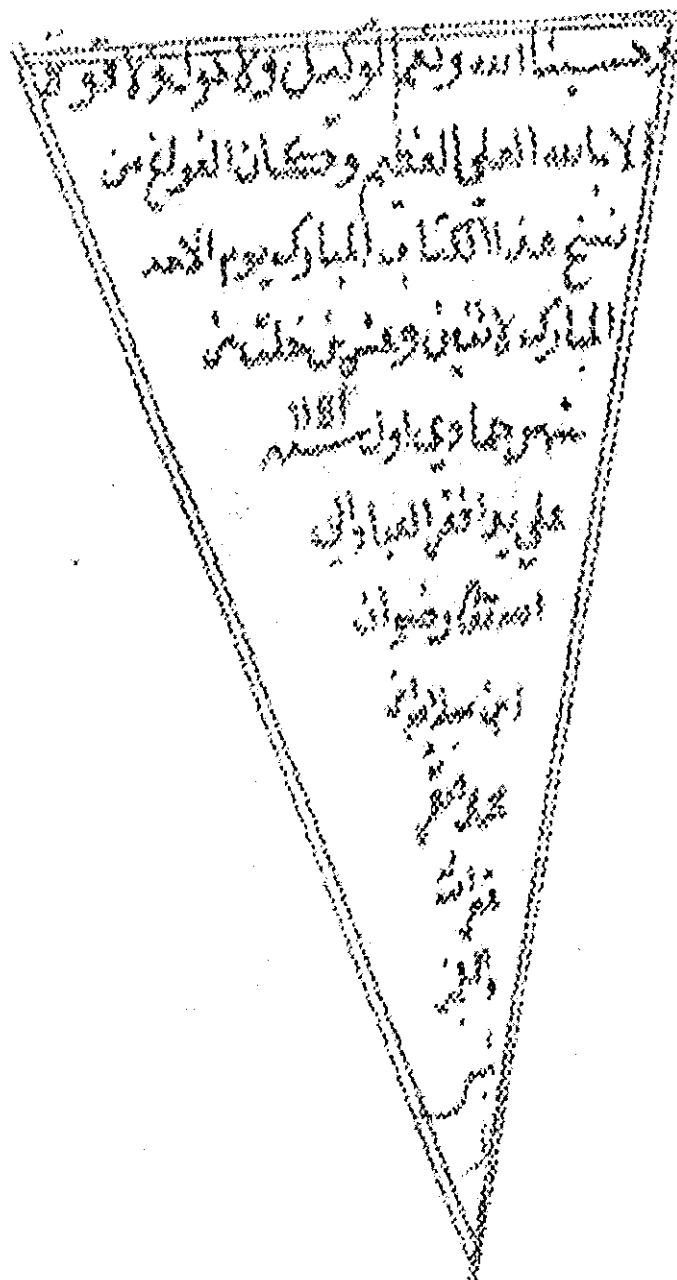 وحسبنا الله ونعم الوكيل ولا حول ولا قوة
الا بالله العلي العظيم وكان الفراغ من
نسخ هذا الكتاب المبارك يوم الاحد
المبارك لاثنين وعشرين خلت من
شهر جمادي اول سنة
علي يد افقر العباد الي
الله رضوان
ابن
محمد
غفر الله